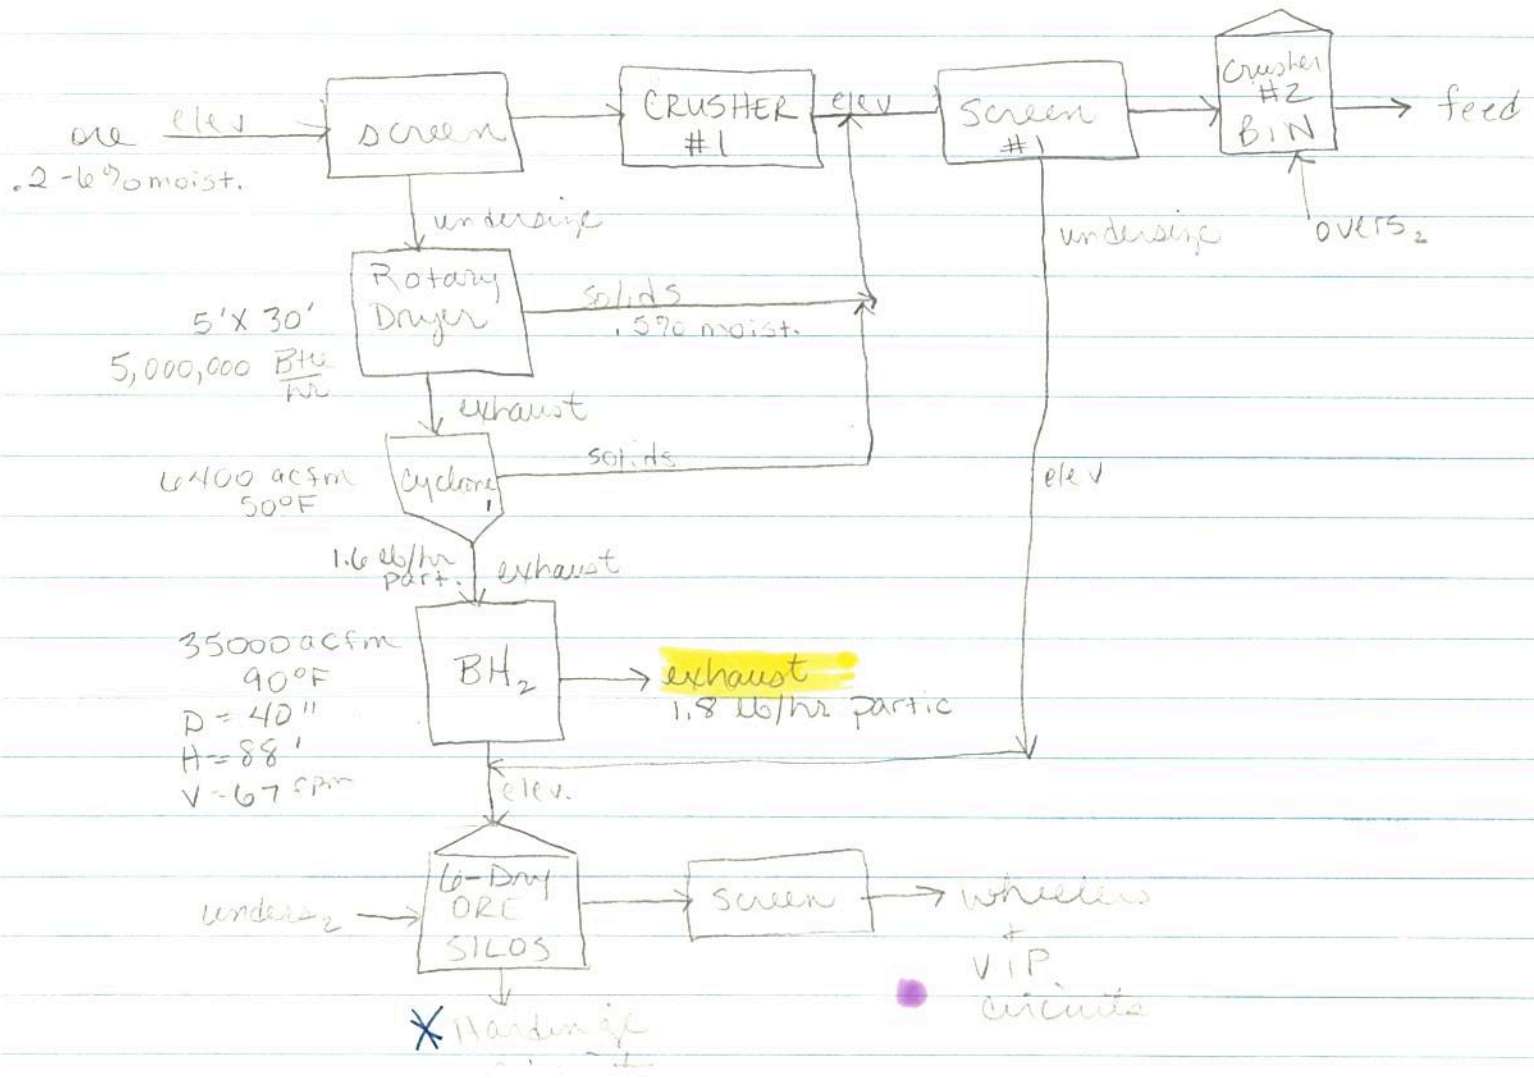 ore
elev
.2-6% moist.
screen
CRUSHER
#1
elev
Screen
#1
Crusher
#2
BIN
feed
undersize
undersize
overs₂
Rotary
Dryer
5' X 30'
5,000,000 Btu
hr
solids
.5% moist.
exhaust
6400 acfm
50°F
Cyclone
1
solids
elev
1.6 lb/hr
part.
exhaust
35000 acfm
90°F
D = 40"
H = 88'
V = 67 fpm
BH₂
exhaust
1.8 lb/hr partic
elev.
unders₂
6-Dry
ORE
SILOS
screen
wheelers
+
VIP
circuits
Hardinge